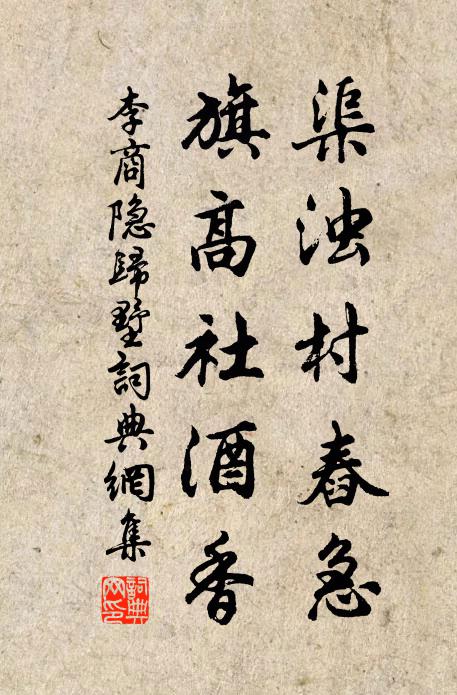 渠浊村舂急
旗高社酒香
李商隐歸墅詞典網集
詞典网印